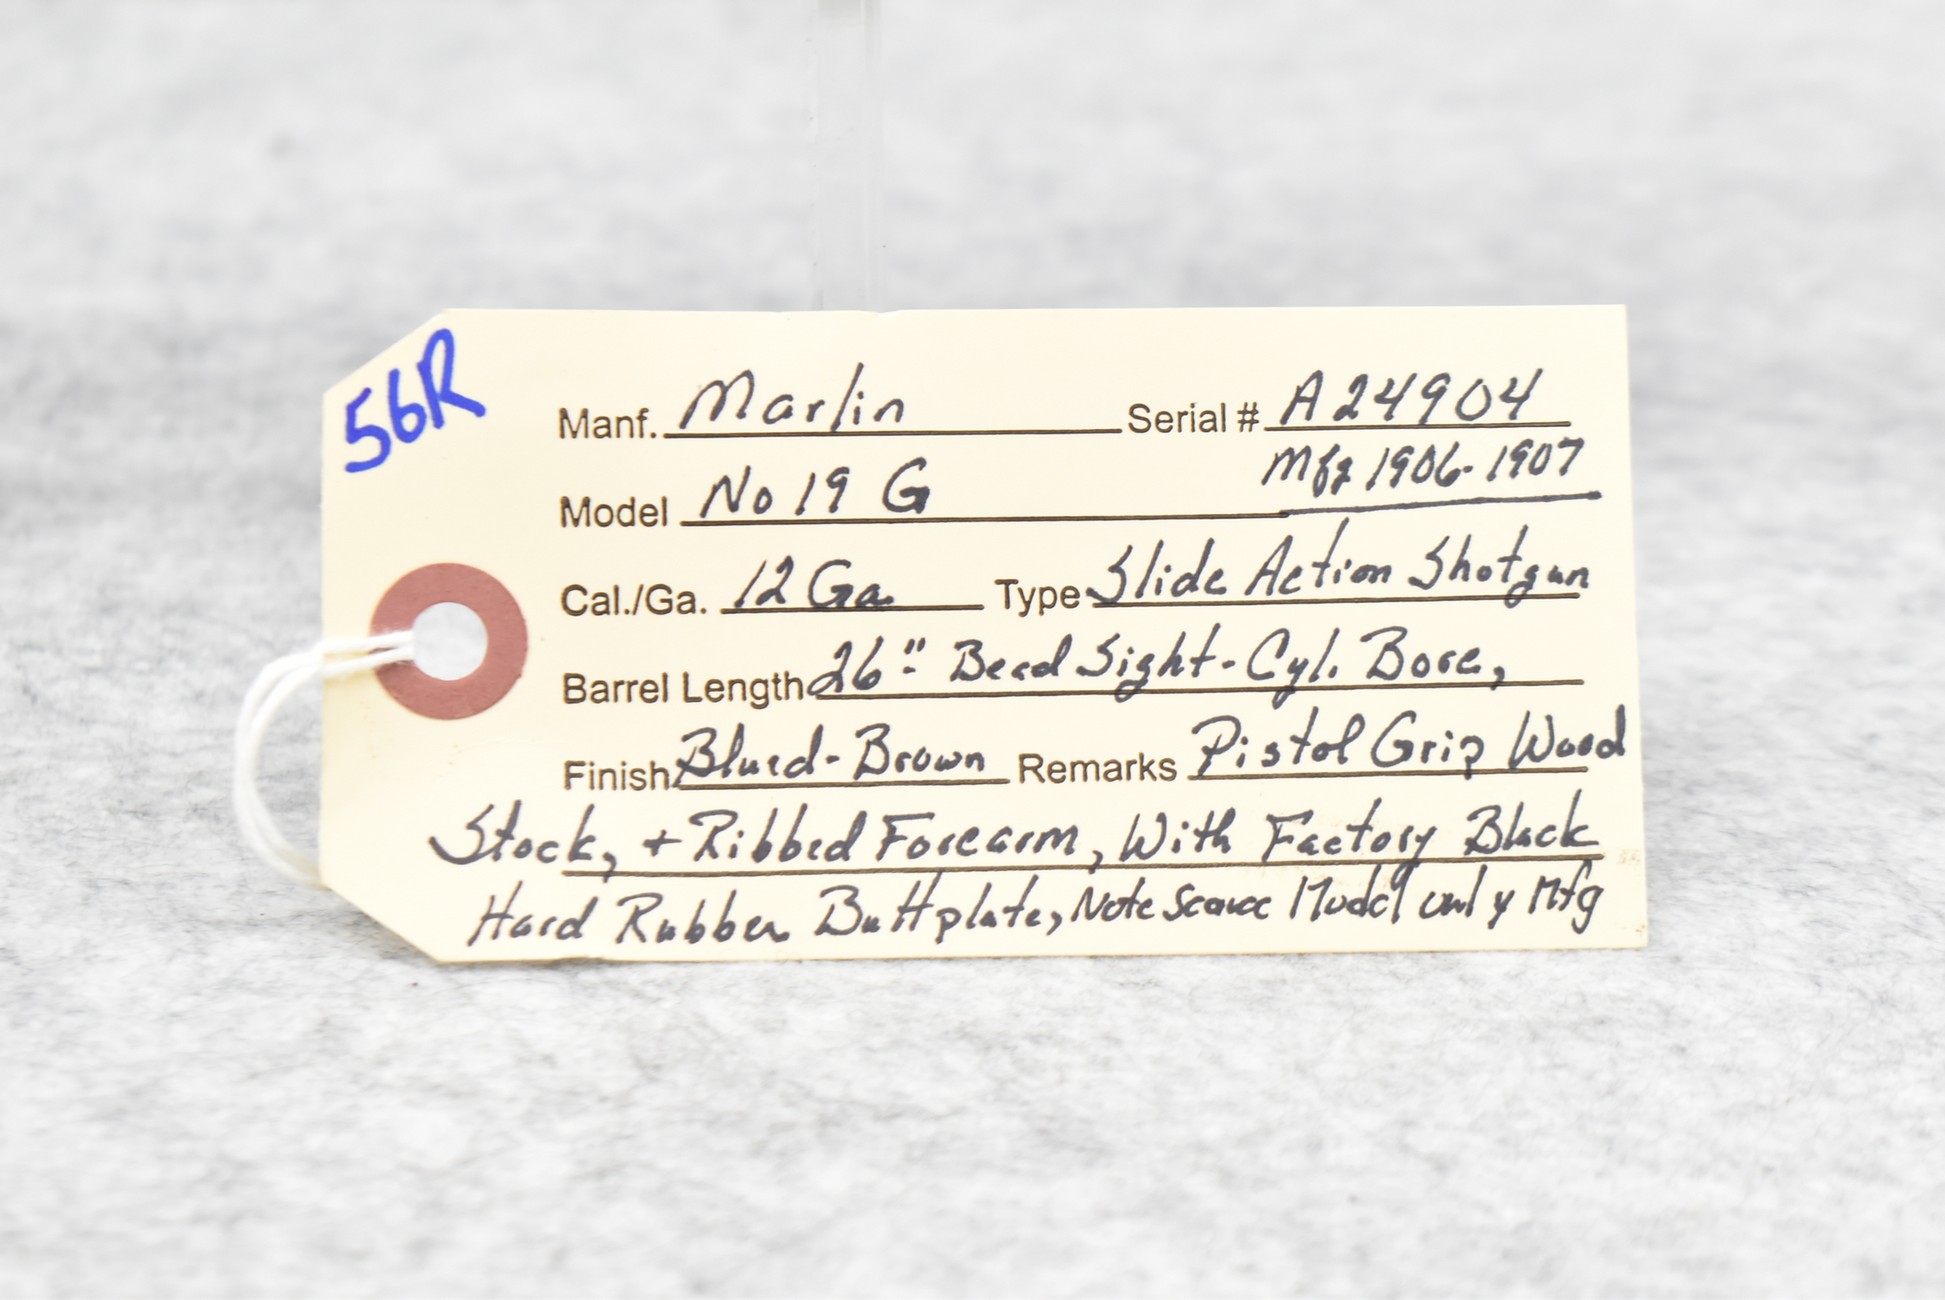 56R
Manf. Marlin Serial # A24904
Mfg 1906-1907
Model No 19 G
Cal./Ga. 12 Ga Type Slide Action Shotgun
Barrel Length 26" Bead Sight - Cyl. Bore,
Finish Blued-Brown Remarks Pistol Grip Wood
Stock, + Ribbed Forearm, With Factory Black
Hard Rubber Buttplate, Note Scarce Model only Mfg